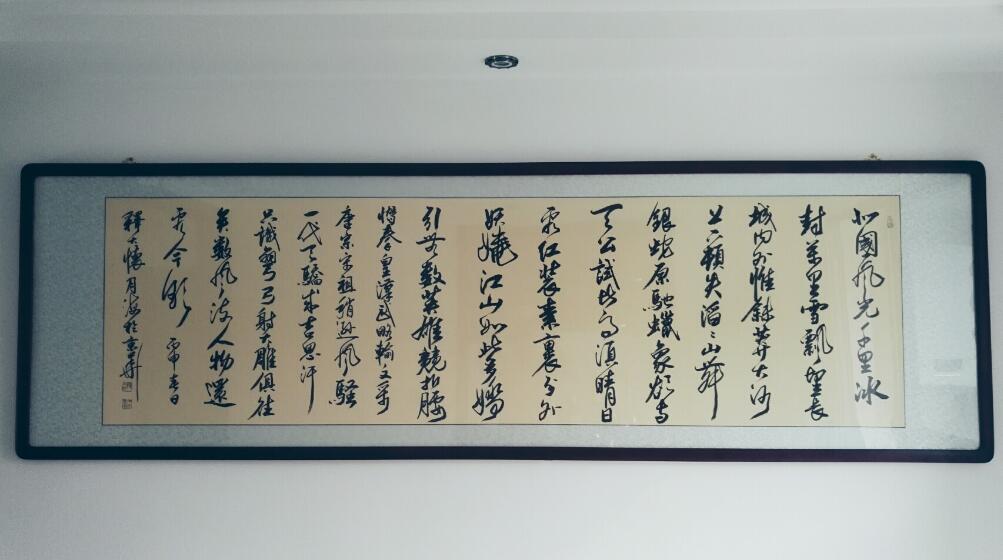 北國風光千里冰
封萬里雪飄望長
城内外惟餘莽大河
上下頓失滔〻山舞
銀蛇原馳蠟象欲与
天公試比高須晴日
看紅裝素裹分外
妖嬈江山如此多嬌
引無數英雄競折腰
惜秦皇漢武略輸文采
唐宗宋祖稍遜風騷
一代天驕成吉思汗
只識彎弓射大雕俱往
矣數風流人物還
看今朝 丙申春日
釋大懷月海於京華